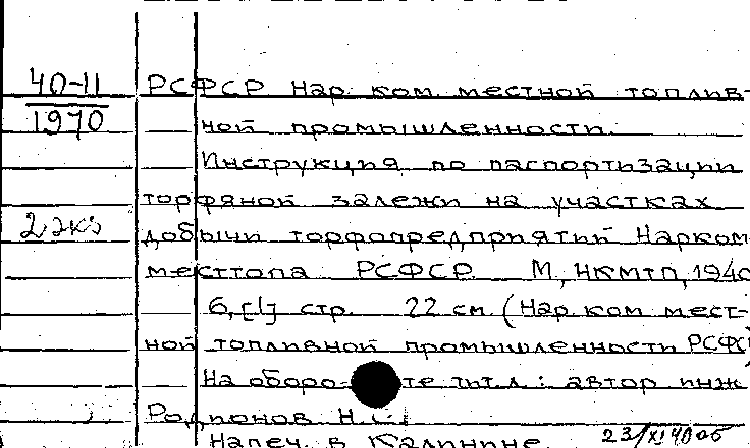 40-11
1970
РСФСР Нар. ком. местной топлив-
ной промышленности.
Инструкция по паспортизации
торфяной залежи на участках
2 экз
добычи торфопредприятий Нарком
месттопа РСФСР М, НКМТП, 1940
6, [1] стр. 22 см (Нар. ком мест-
ной топливной промышленности РСФС
На обороте тит. л.: автор инж
Родионов Н.С.
Напеч. в Калинине.
23/XI 40